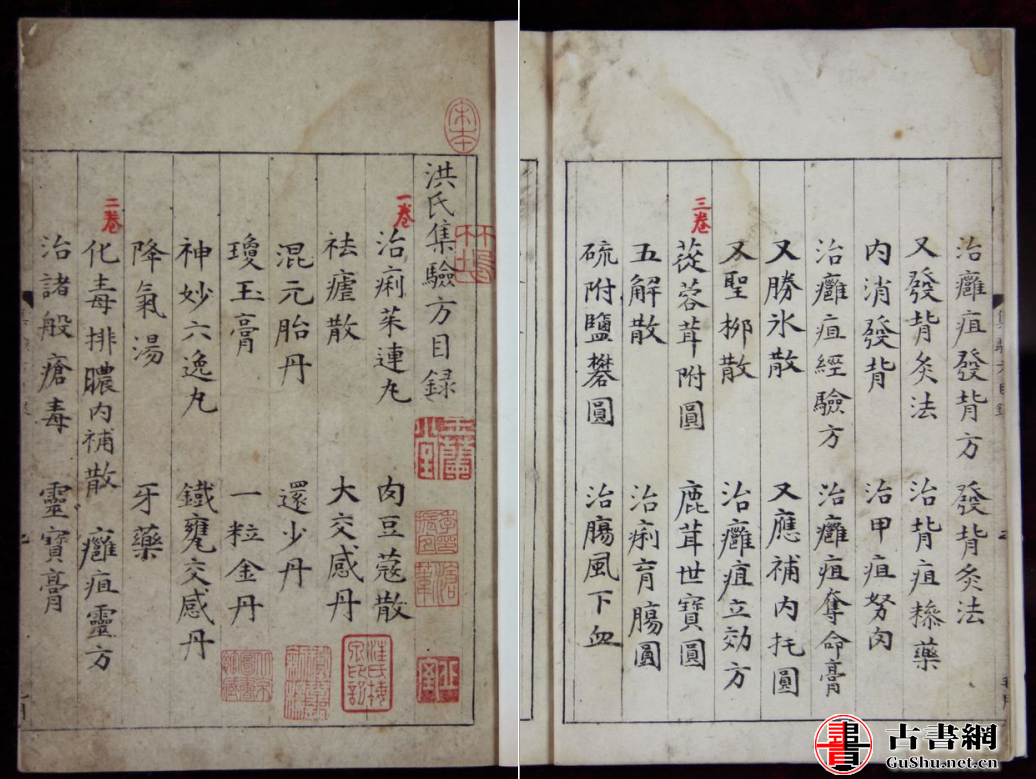 宋本
洪氏集驗方目録
一卷
治痢茱連丸 肉豆蔻散
祛瘧散 大交感丹
混元胎丹 還少丹
瓊玉膏 一粒金丹
神妙六逸丸 鐵甕交感丹
降氣湯 牙藥
二卷
化毒排膿内補散 癰疽靈方
治諸般瘡毒 靈寶膏
治癰疽發背方 發背灸法
又發背灸法 治背疽糝藥
内消發背 治甲疽努肉
治癰疽經驗方 治癰疽奪命膏
又勝氷散 又應補内托圓
又聖栁散 治癰疽立効方
三卷
蓯蓉茸附圓 鹿茸世寶圓
五解散 治痢育腸圓
硫附鹽礬圓 治腸風下血
古書網
GuShu.net.cn